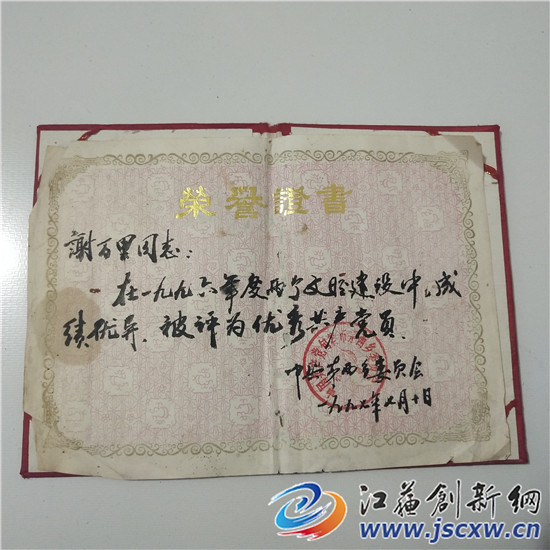 荣誉證書
謝万里同志：
在一九九六年度两个文明建设中，成
绩优异，被评为优秀共产党员。
委员会
一九九七年七月十日
江蘇創新網
www.jscxw.cn